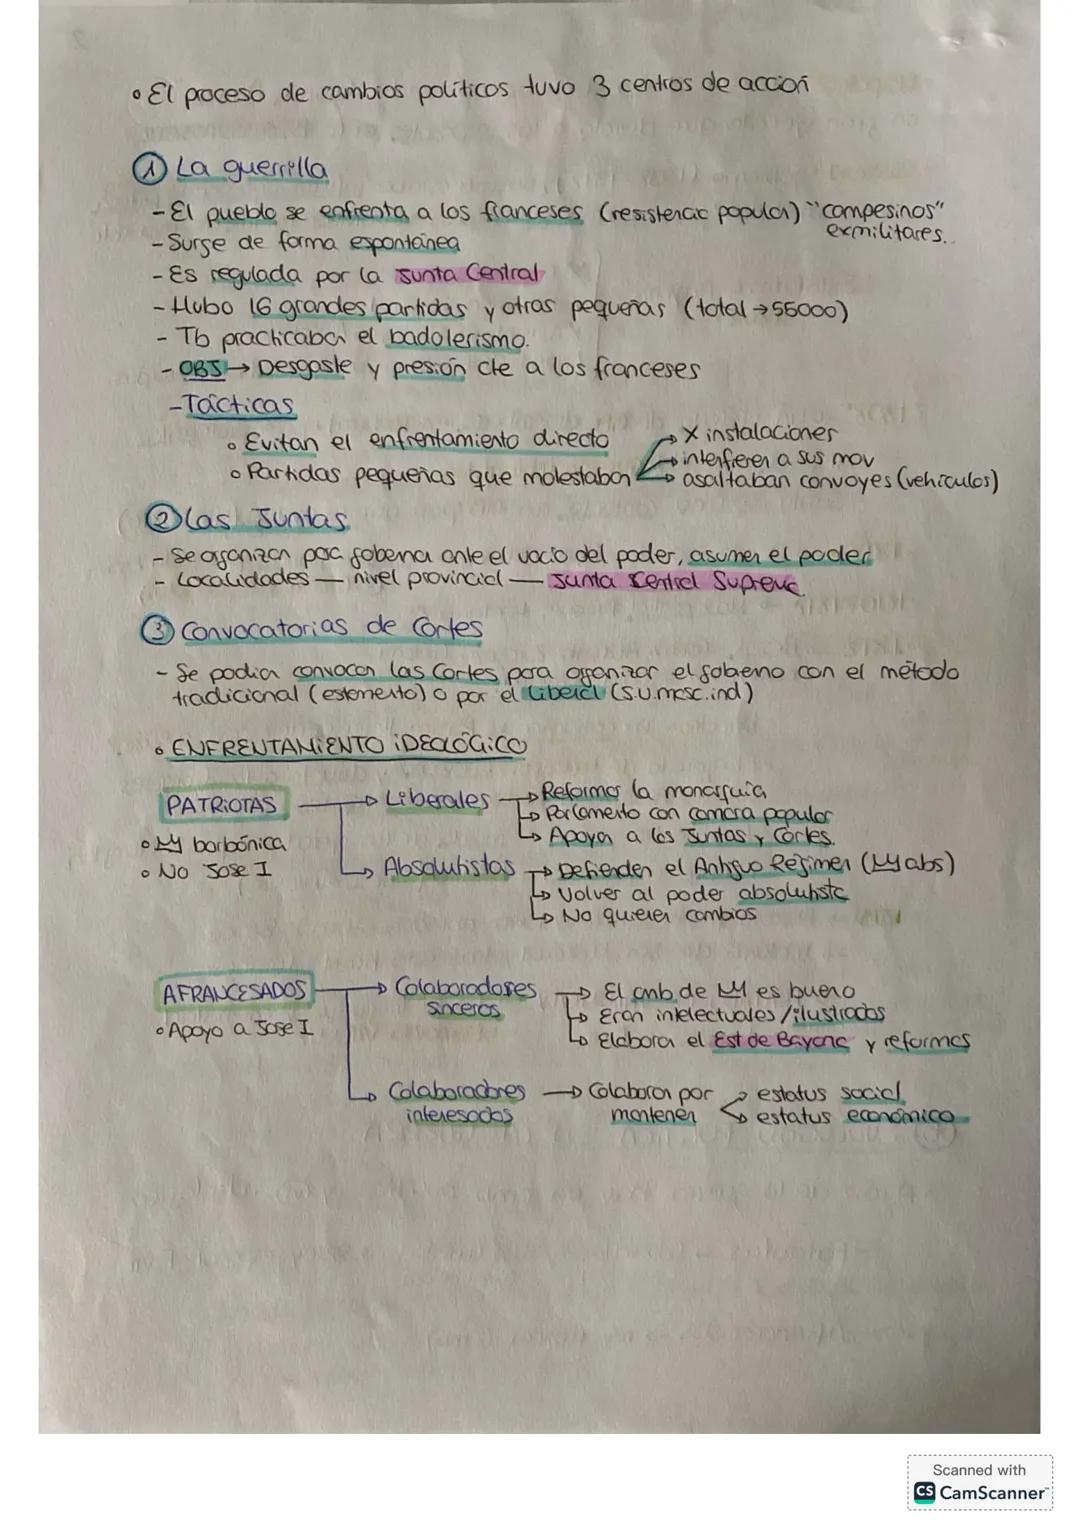 • El proceso de cambios políticos tuvo 3 centros de acción
① La guerrilla
- El pueblo se enfrenta a los franceses (resistencia popular) "campesinos"
exmilitares.
- Surge de forma espontánea
- Es regulada por la Junta Central
- Hubo 16 grandes partidas y otras pequeñas (total → 55000)
- Tb practicaban el badolerismo.
- OBJ → Desgaste y presión cte a los franceses
- Tácticas
• Evitan el enfrentamiento directo
• Partidas pequeñas que molestaban
→ X instalaciones
→ interfieren a sus mov
→ asaltaban convoyes (vehículos)
② Las Juntas
- Se organizan para gobernar ante el vacío del poder, asumen el poder
- Localidades — nivel provincial — Junta Central Suprema
③ Convocatorias de Cortes
- Se podian convocar las Cortes para organizar el gobierno con el método
tradicional (estamento) o por el liberal (S.U.masc.ind)
• ENFRENTAMIENTO IDEOLÓGICO
PATRIOTAS → Liberales → Reformar la monarquía
→ Parlamento con camara popular
→ Apoyan a las Juntas y Cortes.
• borbónica
• No Jose I
→ Absolutistas → Defienden el Antiguo Régimen (abs)
→ Volver al poder absolutista
→ No quieren cambios
AFRANCESADOS → Colaboradores sinceros → El cmb de es bueno
→ Eran intelectuales/ilustrados
→ Elaboran el Est de Bayona y reformas
• Apoyo a Jose I
→ Colaboradores interesados → Colaboran por mantener → estatus social
→ estatus económico
Scanned with
CS CamScanner™